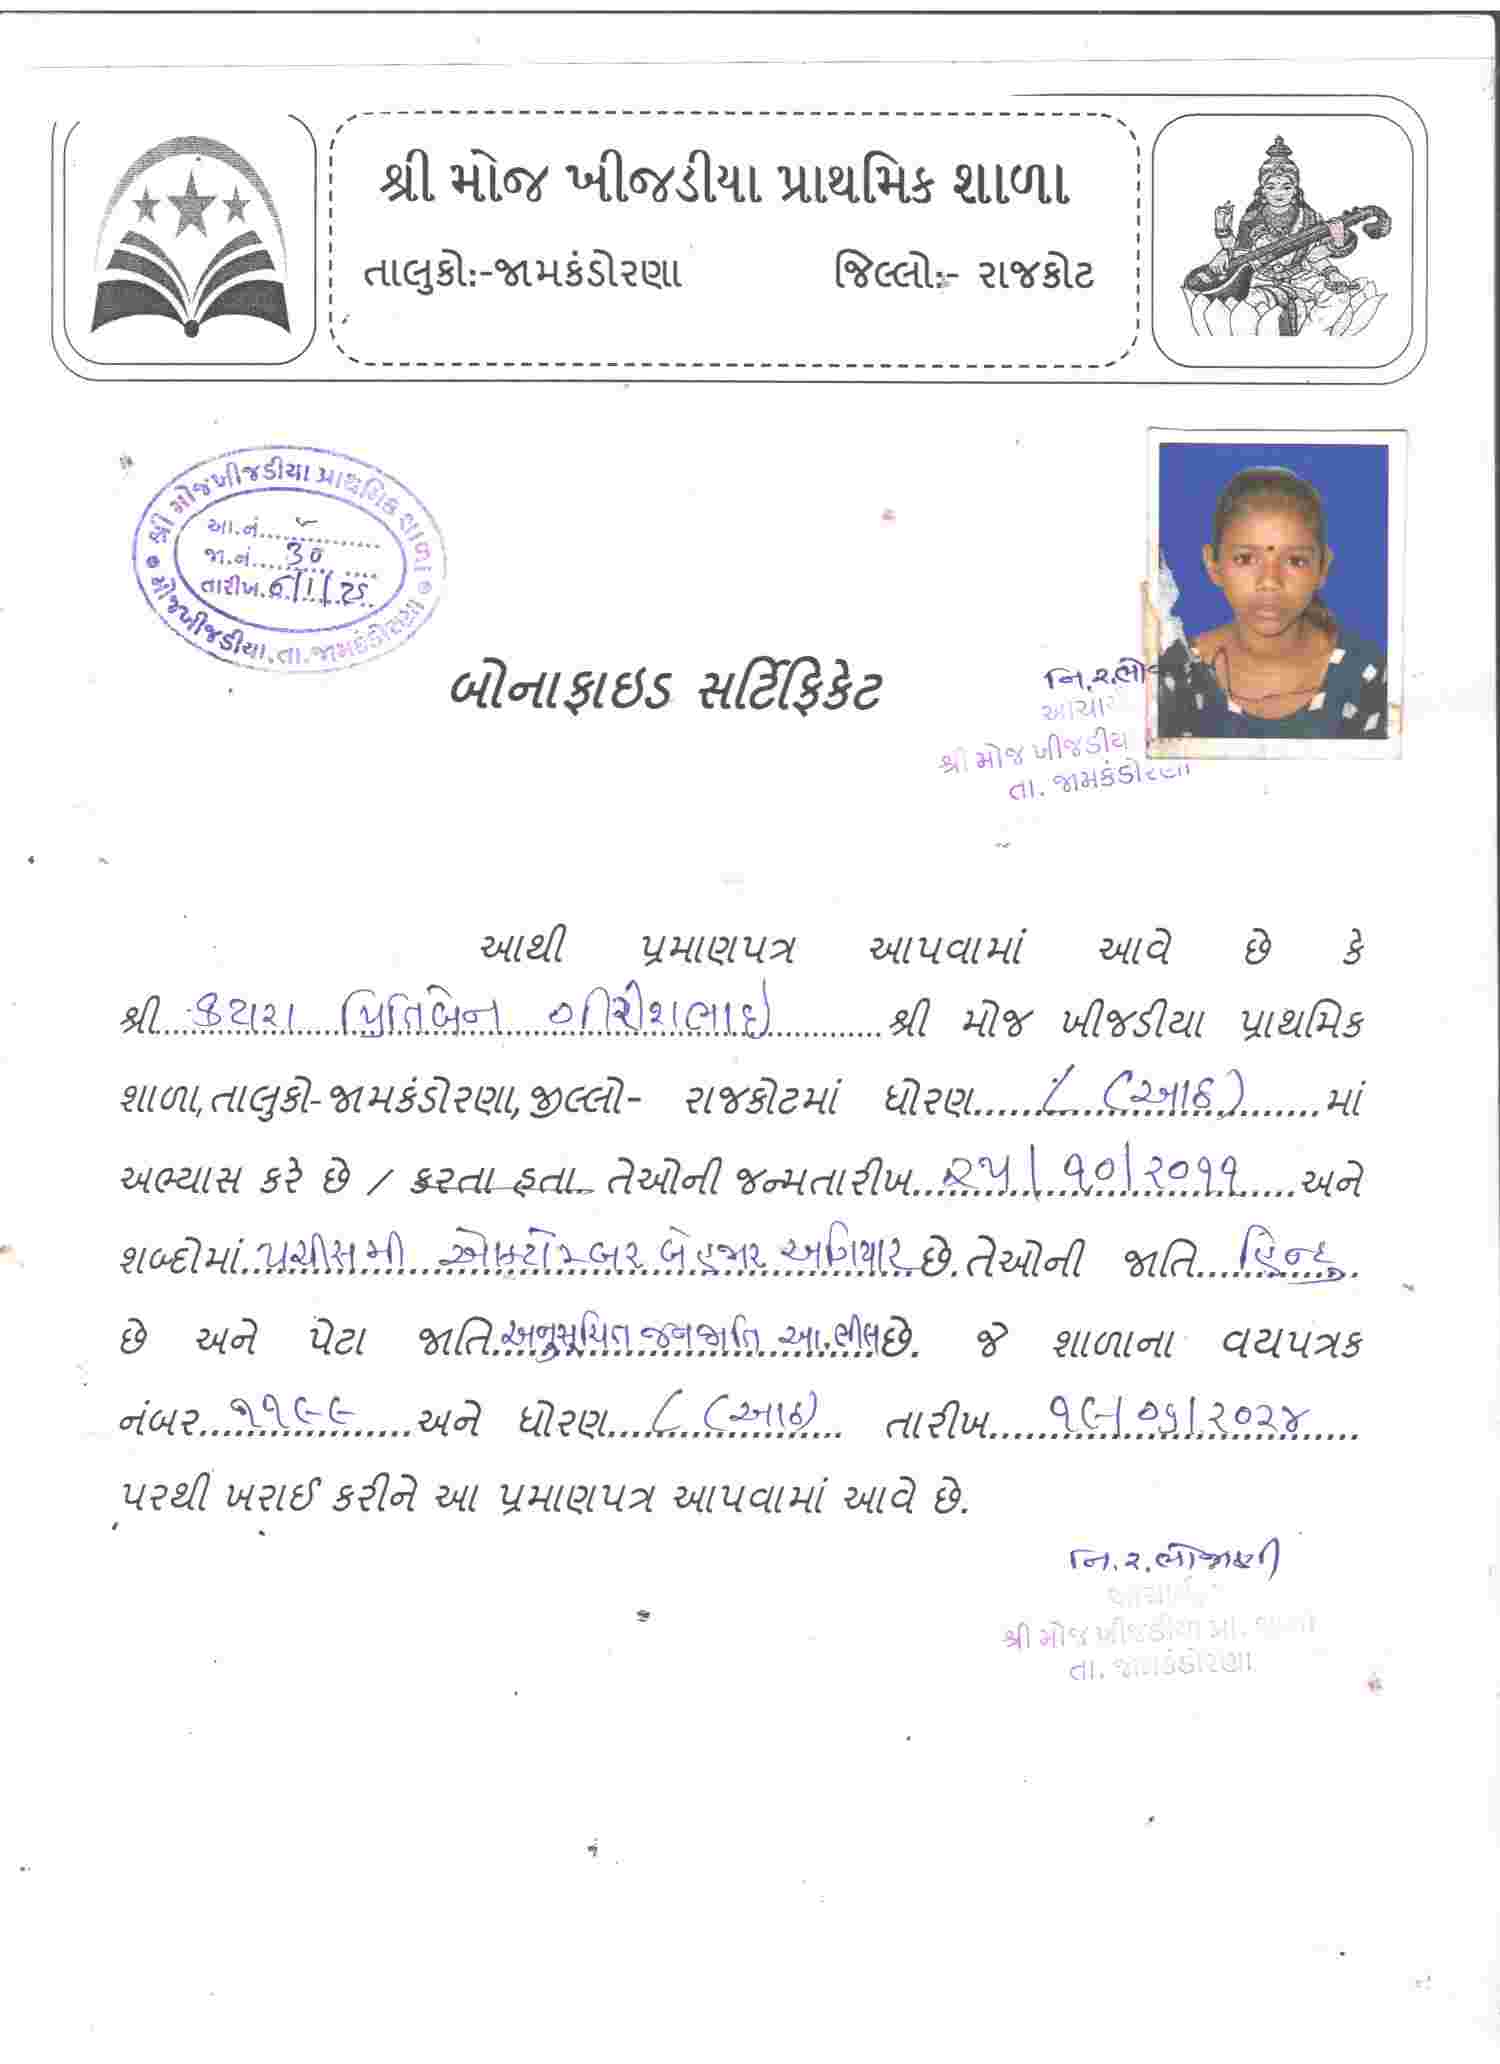 શ્રી મોજ ખીજડીયા પ્રાથમિક શાળા
તાલુકો:-જામકંડોરણા જિલ્લો:- રાજકોટ
શ્રી મોજખીજડીયા પ્રાથમિક શાળા
આ.નં.
જા.નં. ૩૦
તારીખ
મોજખીજડીયા. તા. જામકંડોરણા
બોનાફાઇડ સર્ટિફિકેટ
નિ.ર.ભો
આચાર
શ્રી મોજ ખીજડીય
તા. જામકંડોરણા
આથી પ્રમાણપત્ર આપવામાં આવે છે કે
શ્રી કટારા પ્રિતિબેન ગીરીશભાઇ શ્રી મોજ ખીજડીયા પ્રાથમિક
શાળા,તાલુકો-જામકંડોરણા,જીલ્લો- રાજકોટમાં ધોરણ ૮ (આઠ) માં
અભ્યાસ કરે છે / કરતા હતા. તેઓની જન્મતારીખ ૨૫/૧૦/૨૦૧૧ અને
શબ્દોમાં પચીસમી ઓક્ટોમ્બર બેહજાર અગિયાર છે.તેઓની જાતિ હિન્દુ
છે અને પેટા જાતિ અનુસૂચિત જનજાતિ આ.ભીલ છે. જે શાળાના વયપત્રક
નંબર ૧૧૯૯ અને ધોરણ ૮ (આઠ) તારીખ ૧૯/૦૬/૨૦૨૪
પરથી ખરાઈ કરીને આ પ્રમાણપત્ર આપવામાં આવે છે.
નિ.ર.ભોજાણી
આચાર્ય
શ્રી મોજ ખીજડીયા પ્રા. શાળા
તા. જામકંડોરણા